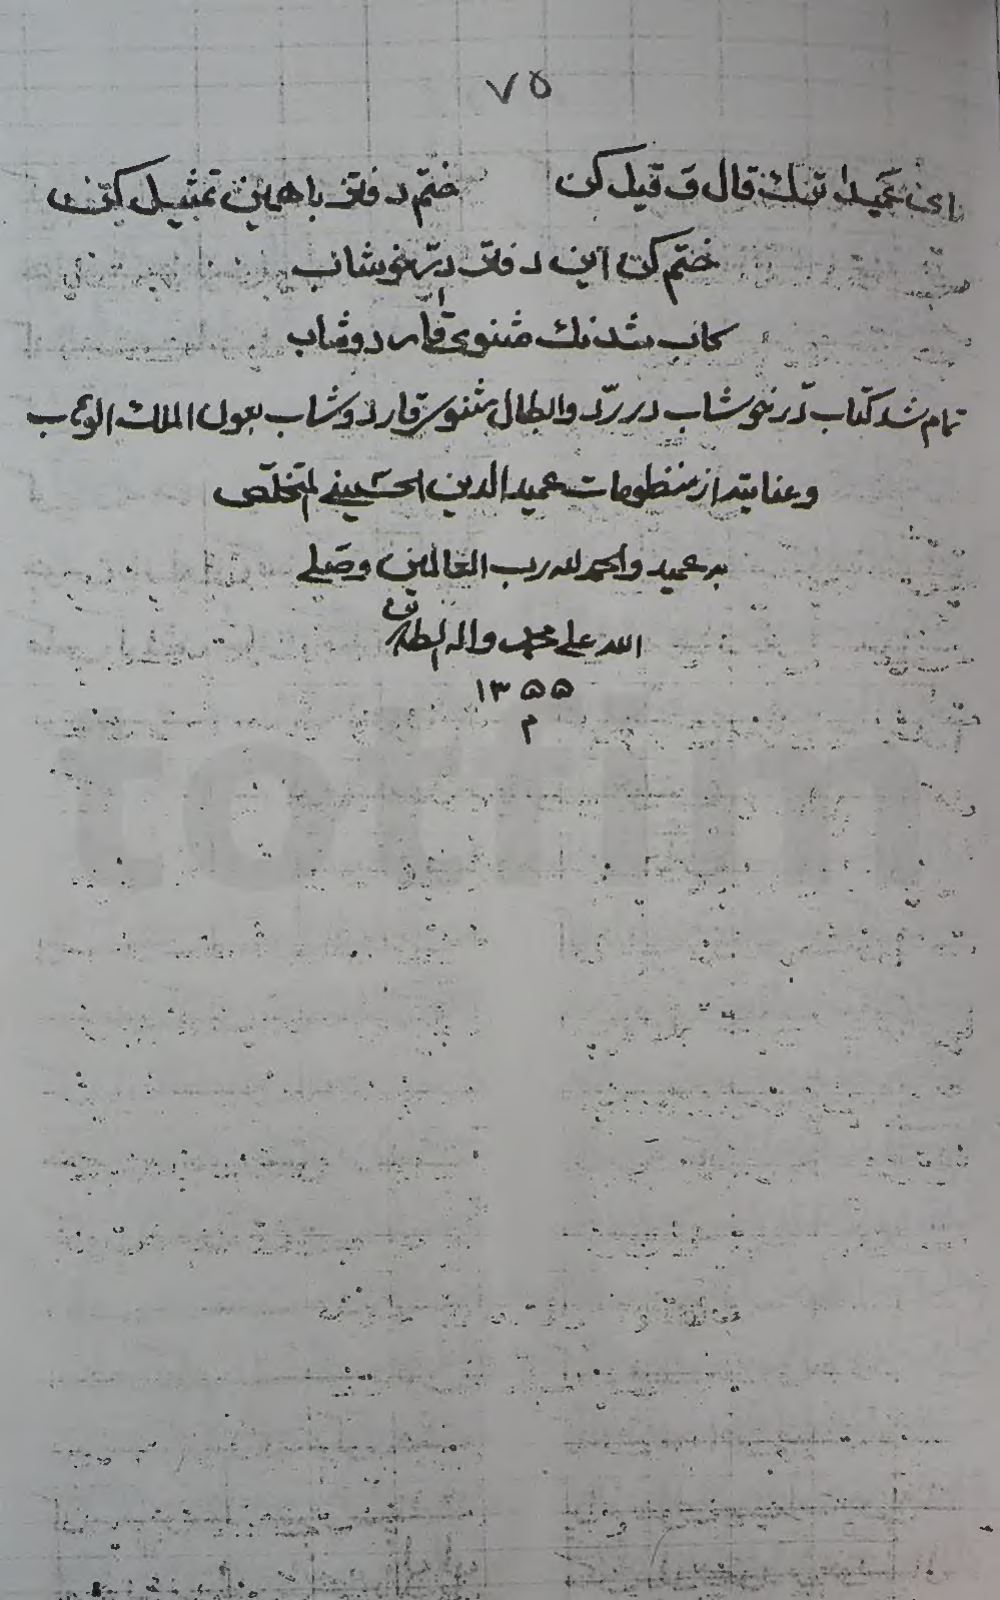 ٧٥
ای عمیدا ترک قال و قیل کن ختم دفتر با همین تمثیل کن
ختم کن این دفتر درّ خوشاب
کاب شد زنگ مثنوی قارد وشاب
تمام شد کتاب درّ خوشاب در ردّ و ابطال مثنوی قارد وشاب بعون الملك الوهاب
و عنایته از منظومات عمید الدین الحسینی المتخلّص
به عمید والحمد لله رب العالمین وصلی
الله علی محمد واله الطاهرین
١٣٥٥
م